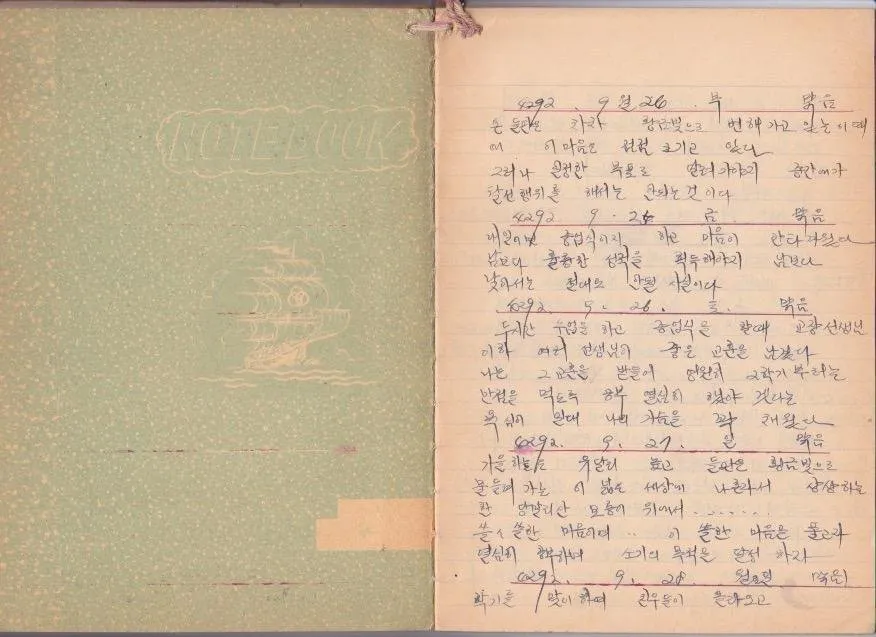 NOTE-BOOK
4292. 9월 26. 부 맑음
온 들판은 차차 황금빛으로 변해 가고 있는 이때
에 이 마음은 점점 크기고 있다
그러나 일정한 목표로 달려가야지 중간에가
탈선행위를 해서는 안되는 것이다
4292 9. 26 금. 맑음
내일이면 종업식이지 하고 마음이 안타까웠다
남보다 훌륭한 성적을 획득해야지 남보다
낮아서는 절대로 안될 사실이다
4292. 9. 26. 토. 맑음
두시간 수업을 하고 종업식을 할때 교장선생님
이하 여러 선생님이 좋은 교훈을 남겼다
나는 그 교훈을 받들어 영원히 2학기 부터는
만점을 먹도록 공부 열심히 했야 겠다는
욕심이 일대 나의 가슴을 꽉 채웠다
4292. 9. 27. 일 맑음
가을 하늘은 유달리 높고 들판은 황금빛으로
물들며 가는 이 넓은 세상에 나 혼라서 상상하는
한 양갈리산 모퉁이 위에서......
쓸쓸한 마음이여.. 이 쓸한 마음을 물고라
열심히 공부하며 소기의 목적을 달성 하자
4292. 9. 28 월요일 맑음
학기를 맞이 하여 친우들이 올라오고